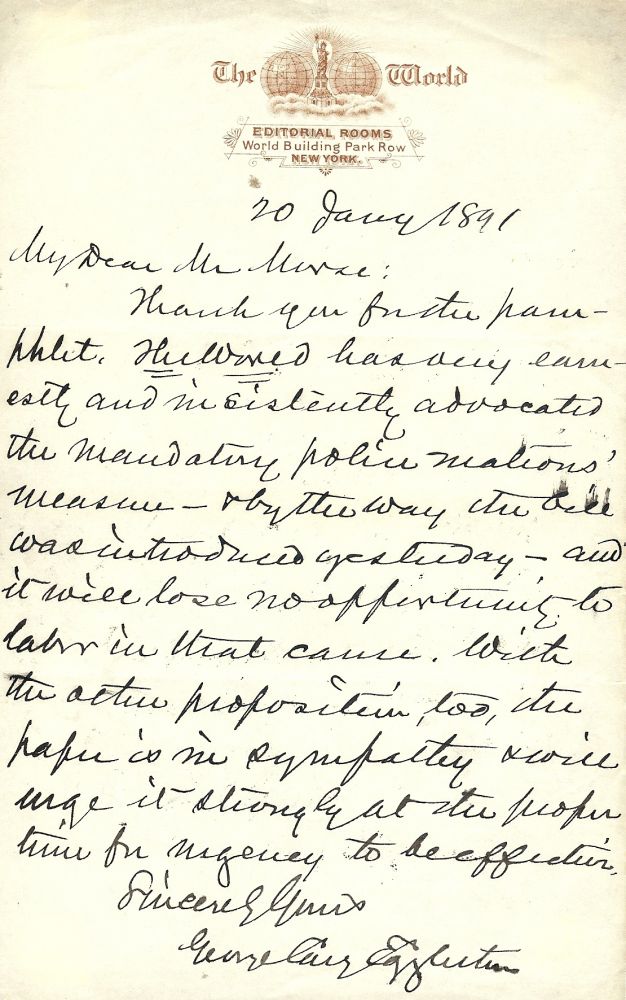 The World
EDITORIAL ROOMS
World Building Park Row
NEW YORK.
20 Jany 1891
My Dear Mr Morse:
Thank you for the pam-
phlet. The World has very earn-
estly and insistently advocated
the mandatory police matrons'
measure – & by the way the bill
was introduced yesterday – and
it will lose no opportunity to
labor in that cause. With
the other proposition, too, the
paper is in sympathy & will
urge it strongly at the proper
time for urgency to be effective.
Sincerely Yours
George Cary Eggleston